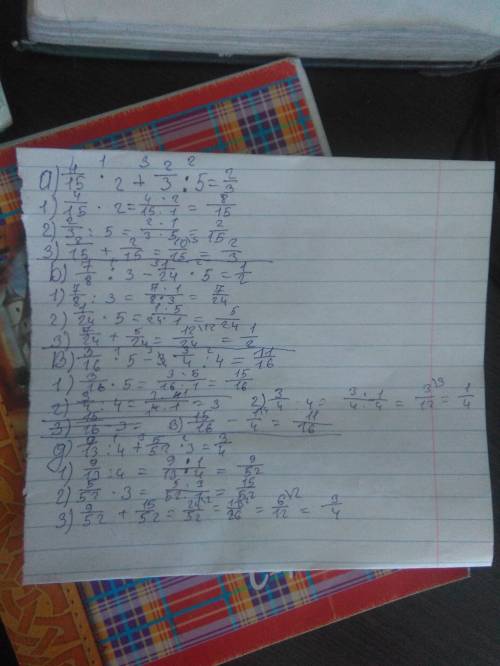 а) 4/15 · 2 + 2/3 : 5 = 2/3
1) 4/15 · 2 = 4 · 2/15 · 1 = 8/15
2) 2/3 : 5 = 2 · 1/3 · 5 = 2/15
3) 8/15 + 2/15 = 10/15 = 2/3
Б) 7/8 : 3 - 1/24 · 5 = 1/2
1) 7/8 : 3 = 7 · 1/8 · 3 = 7/24
2) 1/24 · 5 = 1 · 5/24 · 1 = 5/24
3) 7/24 + 5/24 = 12/24 = 1/2
В) 3/16 · 5 - 3/4 : 4 = 11/16
1) 3/16 · 5 = 3 · 5/16 · 1 = 15/16
2) 3/4 : 4 = 3 · 1/4 · 4 = 3/12 = 1/4
3) 15/16 - 1/4 = 11/16
д) 9/13 : 4 + 5/52 · 3 = 3/4
1) 9/13 : 4 = 9 · 1/13 · 4 = 9/52
2) 5/52 · 3 = 5 · 3/52 · 1 = 15/52
3) 9/52 + 15/52 = 24/52 = 6/12 = 3/4